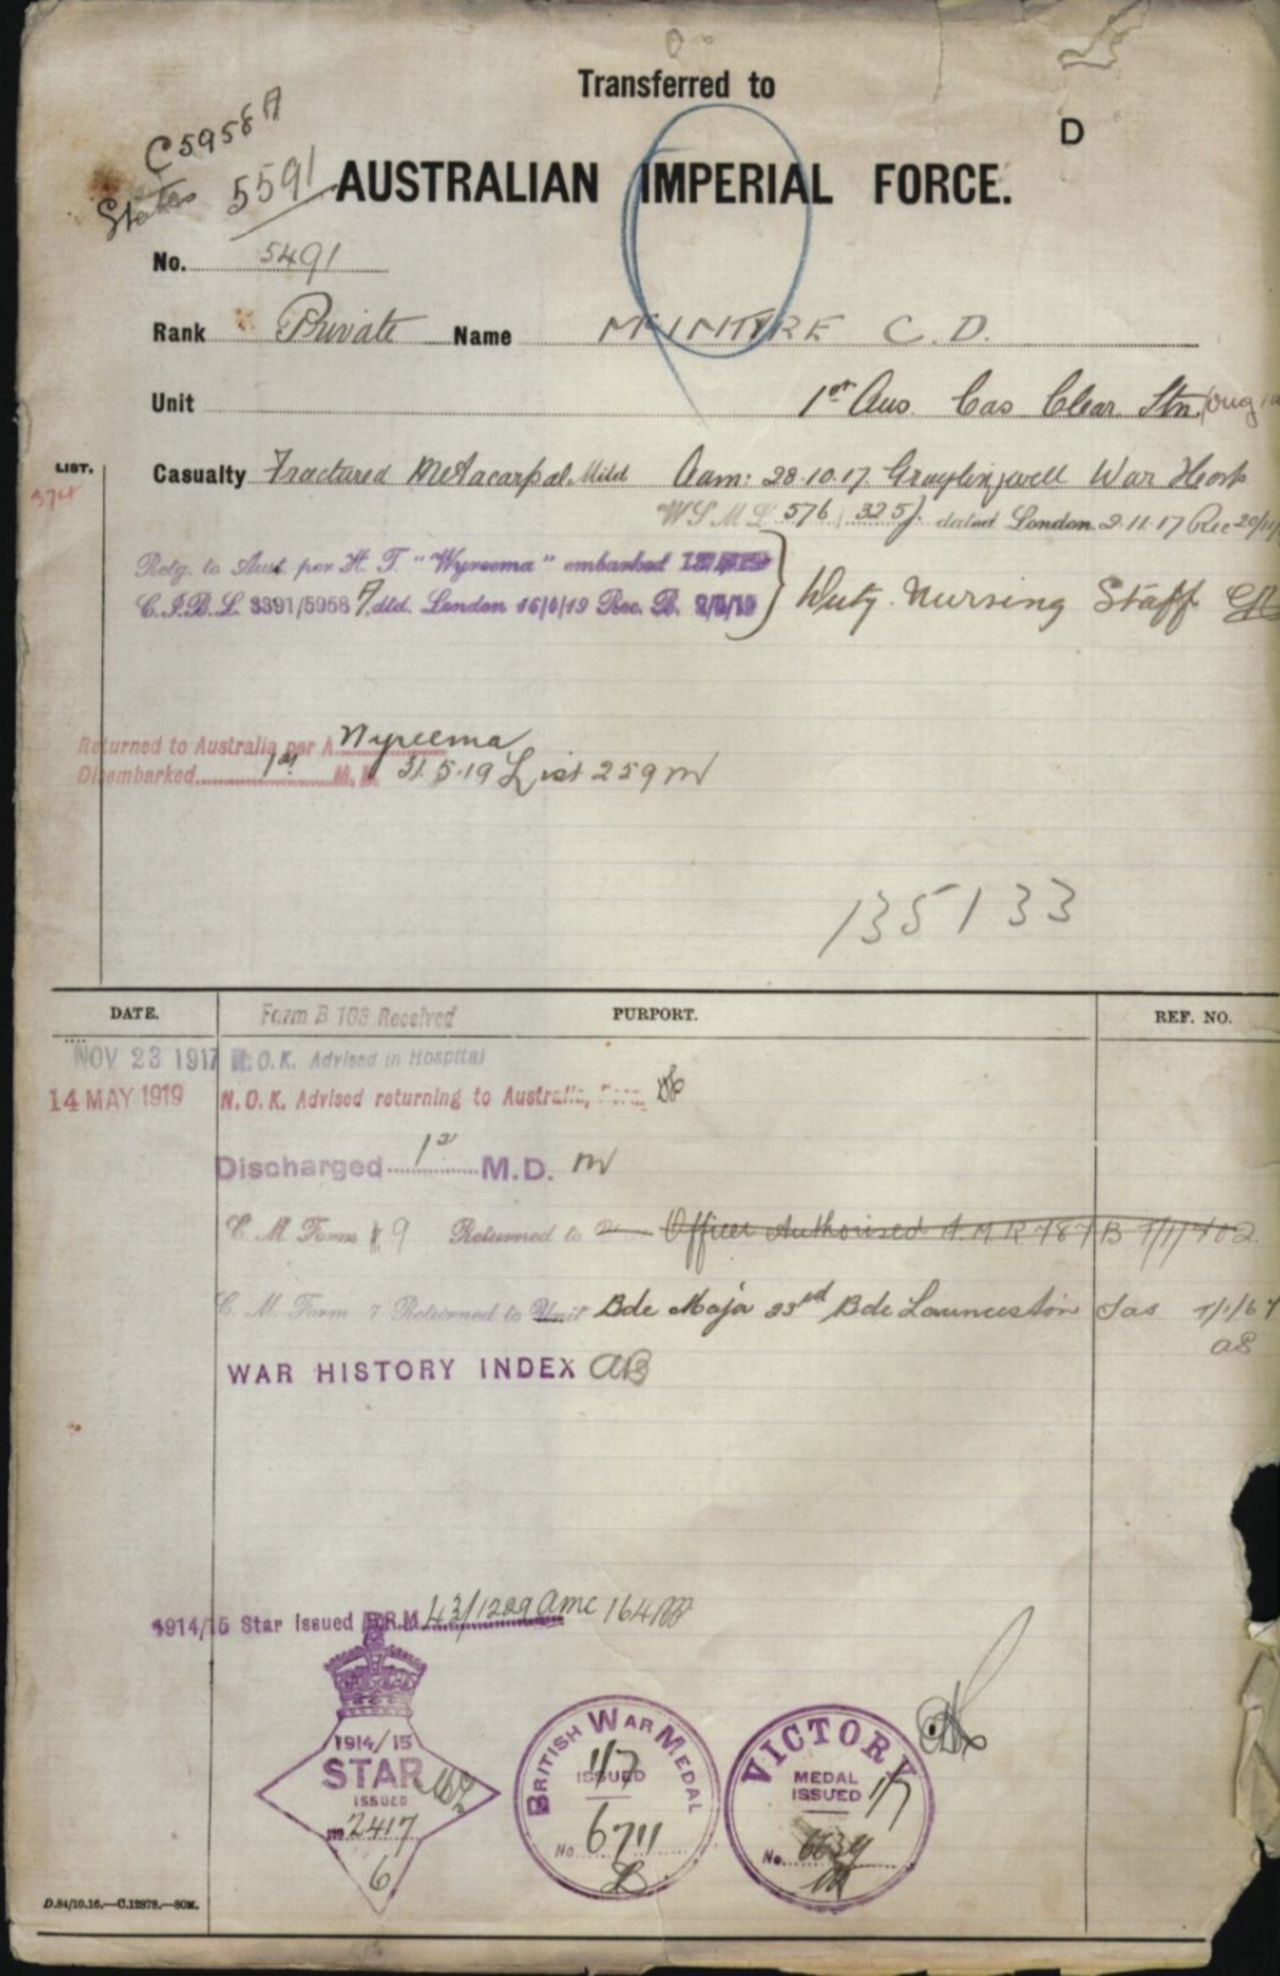 Transferred to
D
C5958A
States 5591
AUSTRALIAN IMPERIAL FORCE.
No. 5491
Rank Private Name McINTYRE C. D.
Unit 1st Aus. Cas Clear. Stn.
LIST. Casualty Fractured Metacarpal. Mild Adm: 28.10.17. Graylingwell War Hosp
576 325 dated London 9.11.17 Rec 20/11
Retg. to Aust. per H. T. "Wyreema" embarked
C.I.B.L. 3391/5958 A. dtd. London 16/4/19 Rec. B.
Duty. Nursing Staff
Returned to Australia per A Wyreema
Disembarked 1st M. D. 31.5.19 List 259 M
135133
DATE. PURPORT. REF. NO.
Form B 103 Received
NOV 23 1917 N. O. K. Advised in Hospital
14 MAY 1919 N. O. K. Advised returning to Australia,
Discharged 1st M.D. M
C. M Form 9 Returned to Officer Authorised A.M.R 787B
C. M Form 7 Returned to Unit Bde Major 23rd Bde Launceston Tas 7/1/67
WAR HISTORY INDEX AB
1914/15 Star issued D.R.M. 43/1229 AMC 164
1914/15
STAR
ISSUED
2417
6
BRITISH WAR MEDAL
1/7
ISSUED
No. 6711
VICTORY
MEDAL
ISSUED 1/7
No. 6639
D.84/10.16.—C.12878.—50M.